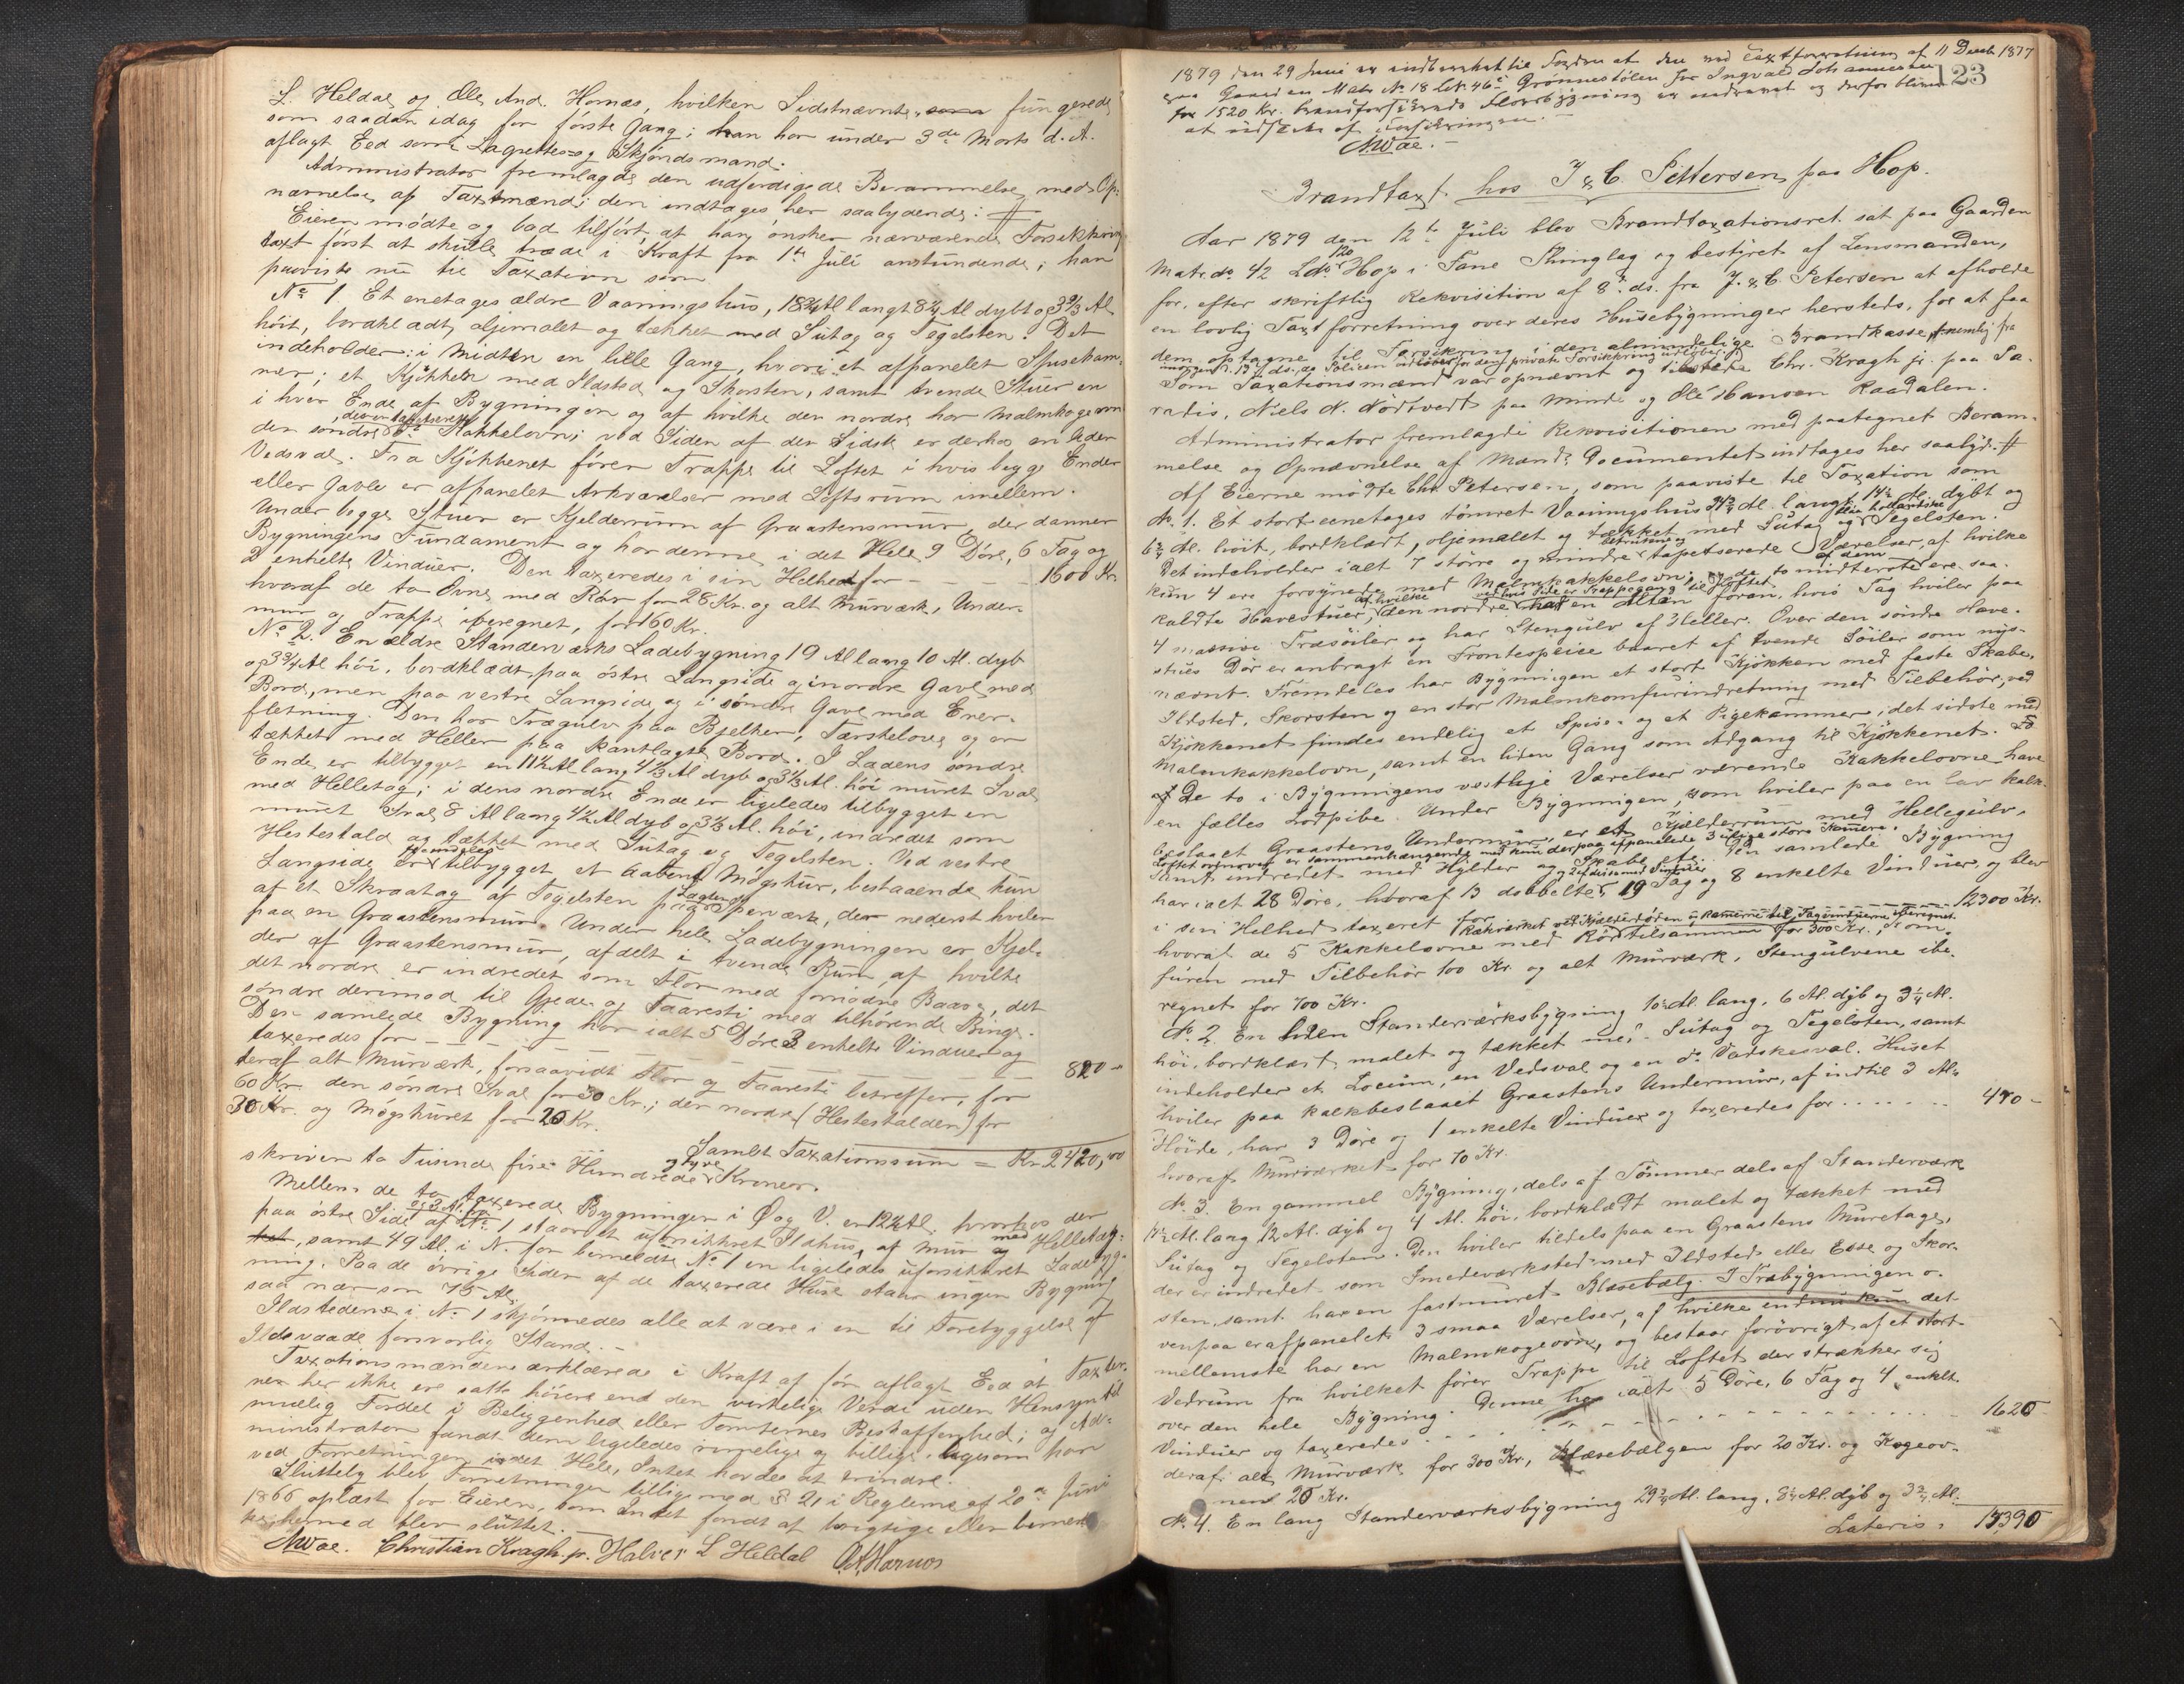 L. Heldal og Ole And. Hornæs, hvilken Sidstnævnte, som fungerede
som saadan idag for første Gang; han har under 3de Marts d. A.
aflagt Eed som Lagrettes- og Skjøndsmand.
Administrator fremlagde den udfærdigede Berammelse med Op-
nævnelse af Taxtmænd; den indtages her saalydende: #
Eieren mødte og bad tilført, at han ønsker nærværende Forsikrings-
taxt først at skulle træde i Kraft fra 1ste Juli anstundende; han
paaviste nu til Taxation som
No 1. Et enetages ældre Vaaningshus, 18 3/4 Al langt 8 1/4 Al dybt og 3 2/3 Al
høit, bordklædt, oljemalet og tækket med Sutag og Tegelsten. Det
indeholder: i Midten en lille Gang, hvori et afpanelet Spisekam-
mer; et Kjøkken med Ildsted og Skorsten, samt tvende Stuer en
i hver Ende af Bygningen og af hvilke den nordre har Malmkogeovn
den søndre, der er tapetseret, do Kakkelovn; ved Siden af den Sidste er derhos en liden
Vedsval. Fra Kjøkkenet fører Trappe til Loftet i hvis begge Ender
eller Gavle er afpanelet Arkværelser med Loftsrum imellem.
Under begge Stuer er Kjelderrum af Graastensmur, der danner
Bygningens Fundament og har denne i det Hele 9 Døre, 6 Fag og
2 enkelte Vinduer. Den taxeredes i sin Helhed for - - - - 1600 Kr.
hvoraf de to Ovne med Rør for 28 Kr. og alt Murværk, Under-
mur og Trappe iberegnet, for 160 Kr.
No 2. En ældre Standerværks Ladebygning 19 Al lang 10 Al. dyb
og 3 3/4 Al høi, bordklædt paa østre Langside og i nordre Gavl med
Bord, men paa vestre Langside og i søndre Gavl med Ener-
fletning. Den har Trægulv paa Bjelker, Tærskelove og er
tækket med Heller paa kantlagte Bord. I Ladens søndre
Ende er tilbygget en 11 1/2 Al lang 4 1/3 Al dyb og 3 1/3 Al. høi muret Sval
med Helletag; i dens nordre Ende er ligeledes tilbygget en
muret Sval 8 Al lang 4 1/2 Al dyb og 3 1/3 Al. høi, indredet som
Hestestald og tækket med Sutag og Tegelsten. Ved vestre
Langside er fremdeles tilbygget et aabent Møgskur, bestaaende kun
af et Skraatag af Tegelsten paa Lægter og Sperværk, der nederst hviler
paa en Graastensmur. Under hele Ladebygningen er Kjel-
der af Graastensmur, afdelt i tvende Rum, af hvilke
det nordre er indredet som Flor med fornødne Baase, det
søndre derimod til Gjede- og Faaresti med tilhørende Binge.
Den samlede Bygning har ialt 5 Døre 3 enkelte Vinduer og
taxeredes for - - - - - - 820 -
deraf alt Murværk, forsaavidt Flor og Faaresti betreffer, for
60 Kr. den søndre Sval for 30 Kr.; den nordre (Hestestalden) for
30 Kr. og Møgskuret for 20 Kr.
Samlet Taxationssum = Kr. 2420,00
skriver to Tusinde fire Hundrede og tyve Kroner.
Mellem de to taxerede Bygninger i Ø og V. er 12 1/2 Al. hvorhos der
paa østre Side af og 3 Al. fra No 1 staar et uforsikkret Ildhus, af Mur med Helletag
samt 49 Al. i N. for bemeldte No 1 en ligeledes uforsikkret Ladebyg-
ning. Paa de øvrige Sider af de taxerede Huse staar ingen Bygning
saa nær som 75 Al.
Ildstederne i No 1 skjønnedes alle at være i en til Forebyggelse af
Ildsvaade forsvarlig Stand.
Taxationsmændene erklærede i Kraft af før aflagt Eed at Taxter-
ne her ikke er satte høiere end den virkelige Værdi uden Hensyn til
muelig Fordel i Beliggenhed eller Tomternes Beskaffenhed; og Ad-
ministrator fandt dem ligeledes rimelige og billige, ligesom han
ved Forretningen i det Hele, Intet havde at erindre.
Sluttelig blev Forretningen tilligemed § 21 i Reglem. af 20de Juni
1866 oplæst for Eieren, som Intet fandt at berigtige eller bemær-
ke, hermed blev sluttet.
AWae. Christian Kragh jr. Halver L Heldal O A Harnos
123
1879 den 29 Juni er indberettet til Fogden at den ved Taxtforretning af 11 Decb 1877
paa Gaarden Matr No 18 Lb. 46c Grønnestølen for Ingvald Johannesen
for 1520 Kr. brandforsikrede Hovedbygning er nedrevet og derfor bliver
at udslette af Forsikringen.
AWae.
Brandtaxt hos J & C. Pettersen paa Hop.
Aar 1879 den 12te Juli blev Brandtaxationsret sat paa Gaarden
Matr. No 42 Ldo 120 Hop i Fane Thinglag og bestyret af Lensmanden,
for, efter skriftlig Rekvisition af 8de ds. fra J. & C. Petersen at afholde
en lovlig Taxtforretning over deres Husebygninger hersteds, for at faa
dem optagne til Forsikring i den almindelige Brandkasse, nemlig fra
imorgen d. 13de ds., da Policen for den private Forsikkring udløber.
Som Taxationsmænd var opnævnt og tilstede Chr. Kragh jr. paa Pa-
radis, Niels N. Nødtvedt paa Minde og Ole Hansen Raadalen.
Administrator fremlagde Rekvisitionen med paategnet Beram-
melse og Opnævnelse af Mænd. Documentet indtages her saalyd. #
Af Eierne mødte Chr. Petersen, som paaviste til Taxation som
No. 1. Et stort eenetages tømret Vaaningshus 34 3/4 Al. langt, 14 1/2 Al. dybt og
6 3/4 Al. høit, bordklædt, oljemalet og tækket med Sutag og blaa hollandske Tegelsten.
Det indeholder ialt 7 større og mindre betrukne og tapetserede Værelser, af hvilke
kun 4 ere forsynede med Malmkakkelovn; de to midterste af dem ere saa-
kaldte Havestuer, af hvilke den nordre ved hvis Side er Trappegang til Loftet har en Altan foran, hvis Tag hviler paa
4 massive Træsøiler og har Stengulv af Heller. Over den søndre Have-
stues Dør er anbragt en Frontespeice baaret af tvende Søiler som nys-
nævnt. Fremdeles har Bygningen et stort Kjøkken med faste Skabe,
Ildsted, Skorsten og en stor Malmkomfurindretning med Tilbehør, ved
Kjøkkenet findes endelig et Spise- og et Pigekammer, det sidste med
Malmkakkelovn, samt en liden Gang som Adgang til Kjøkkenet.
De to i Bygningens vestlige Værelser værende Kakkelovne have
en fælles Lodpibe. Under Bygningen, som hviler paa en lav kalk-
beslaaet Graastens Undermur, er et Kjælderrum med Hellegulv,
Loftet ovenover er sammenhængende med kun derpaa afpanelede 3 ulige store Kamere.
samt indredet med Hylder og Skabe etc. Den samlede Bygning
har ialt 28 Døre, hvoraf 13 dobbelte og 2 af disse med Vinduer, 19 Fag og 8 enkelte Vinduer, og blev
i sin Helhed taxeret for - - - - 12300 Kr.
Rækværket ved Kjælderdøren, Kamerne til, Tagvinduerne iberegnet
hvoraf de 5 Kakkelovne med Rør tilsammen for 300 Kr., Kom-
furen med Tilbehør 100 Kr. og alt Murværk, Stengulvene ibe-
regnet for 700 Kr.
No. 2. En liden Standerværksbygning 10 1/2 Al. lang, 6 Al. dyb og 3 1/4 Al.
høi, bordklædt, malet og tækket med Sutag og Tegelsten, samt
indeholder et Locum, en Vedsval og en do Vadskesval. Huset
hviler paa kalkbeslaaet Graastens Undermur, af indtil 3 Al.
Høide, har 3 Døre og 1 enkelte Vinduer og taxeredes for . . . . . . 470 -
hvoraf Murværket for 70 Kr.
No. 3. En gammel Bygning, dels af Tømmer dels af Standerværk
Al. lang 12 Al. dyb og 4 Al. høi, bordklædt malet og tækket med
Sutag og Tegelsten. Den hviler tildels paa en Graastens Muretage,
der er indredet som Smedeværksted med Ildsted eller Esse og Skor-
sten, samt har en fastmuret Blæsebælg. I Træbygningen o-
venpaa er afpanelet 3 smaa Værelser, af hvilke endnu kun det
mellemste har en Malmkogeovn, og bestaar forøvrigt af et stort
Vedrum fra hvilket fører Trappe til Loftet der strækker sig
over den hele Bygning. Denne har ialt 5 Døre, 6 Fag og 4 enkelt
Vinduer og taxeredes . . . . . . . 1620
deraf alt Murværk for 300 Kr., Blæsebælgen for 20 Kr. og Kogeov-
nen 20 Kr.
No. 4. En lang Standerværksbygning 29 3/4 Al. lang, 8 1/4 Al. dyb og 3 3/4 Al.
Lateris: 14390